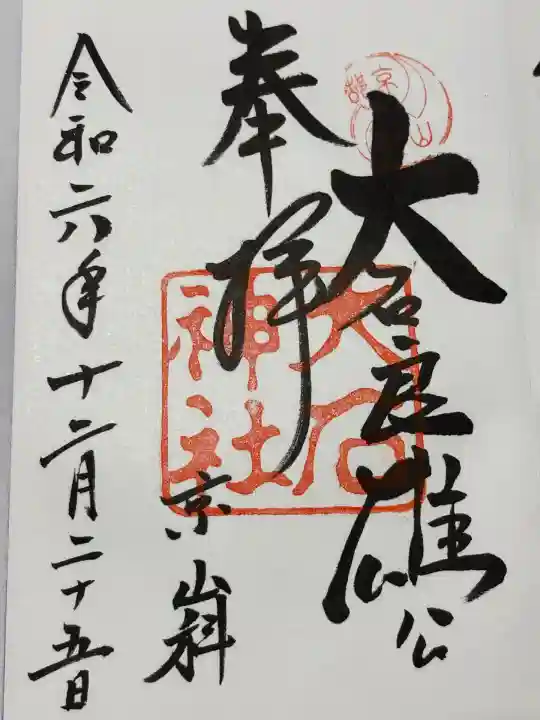 大石良雄公
奉拝
大石
神社
京山科
令和六年十二月二十五日